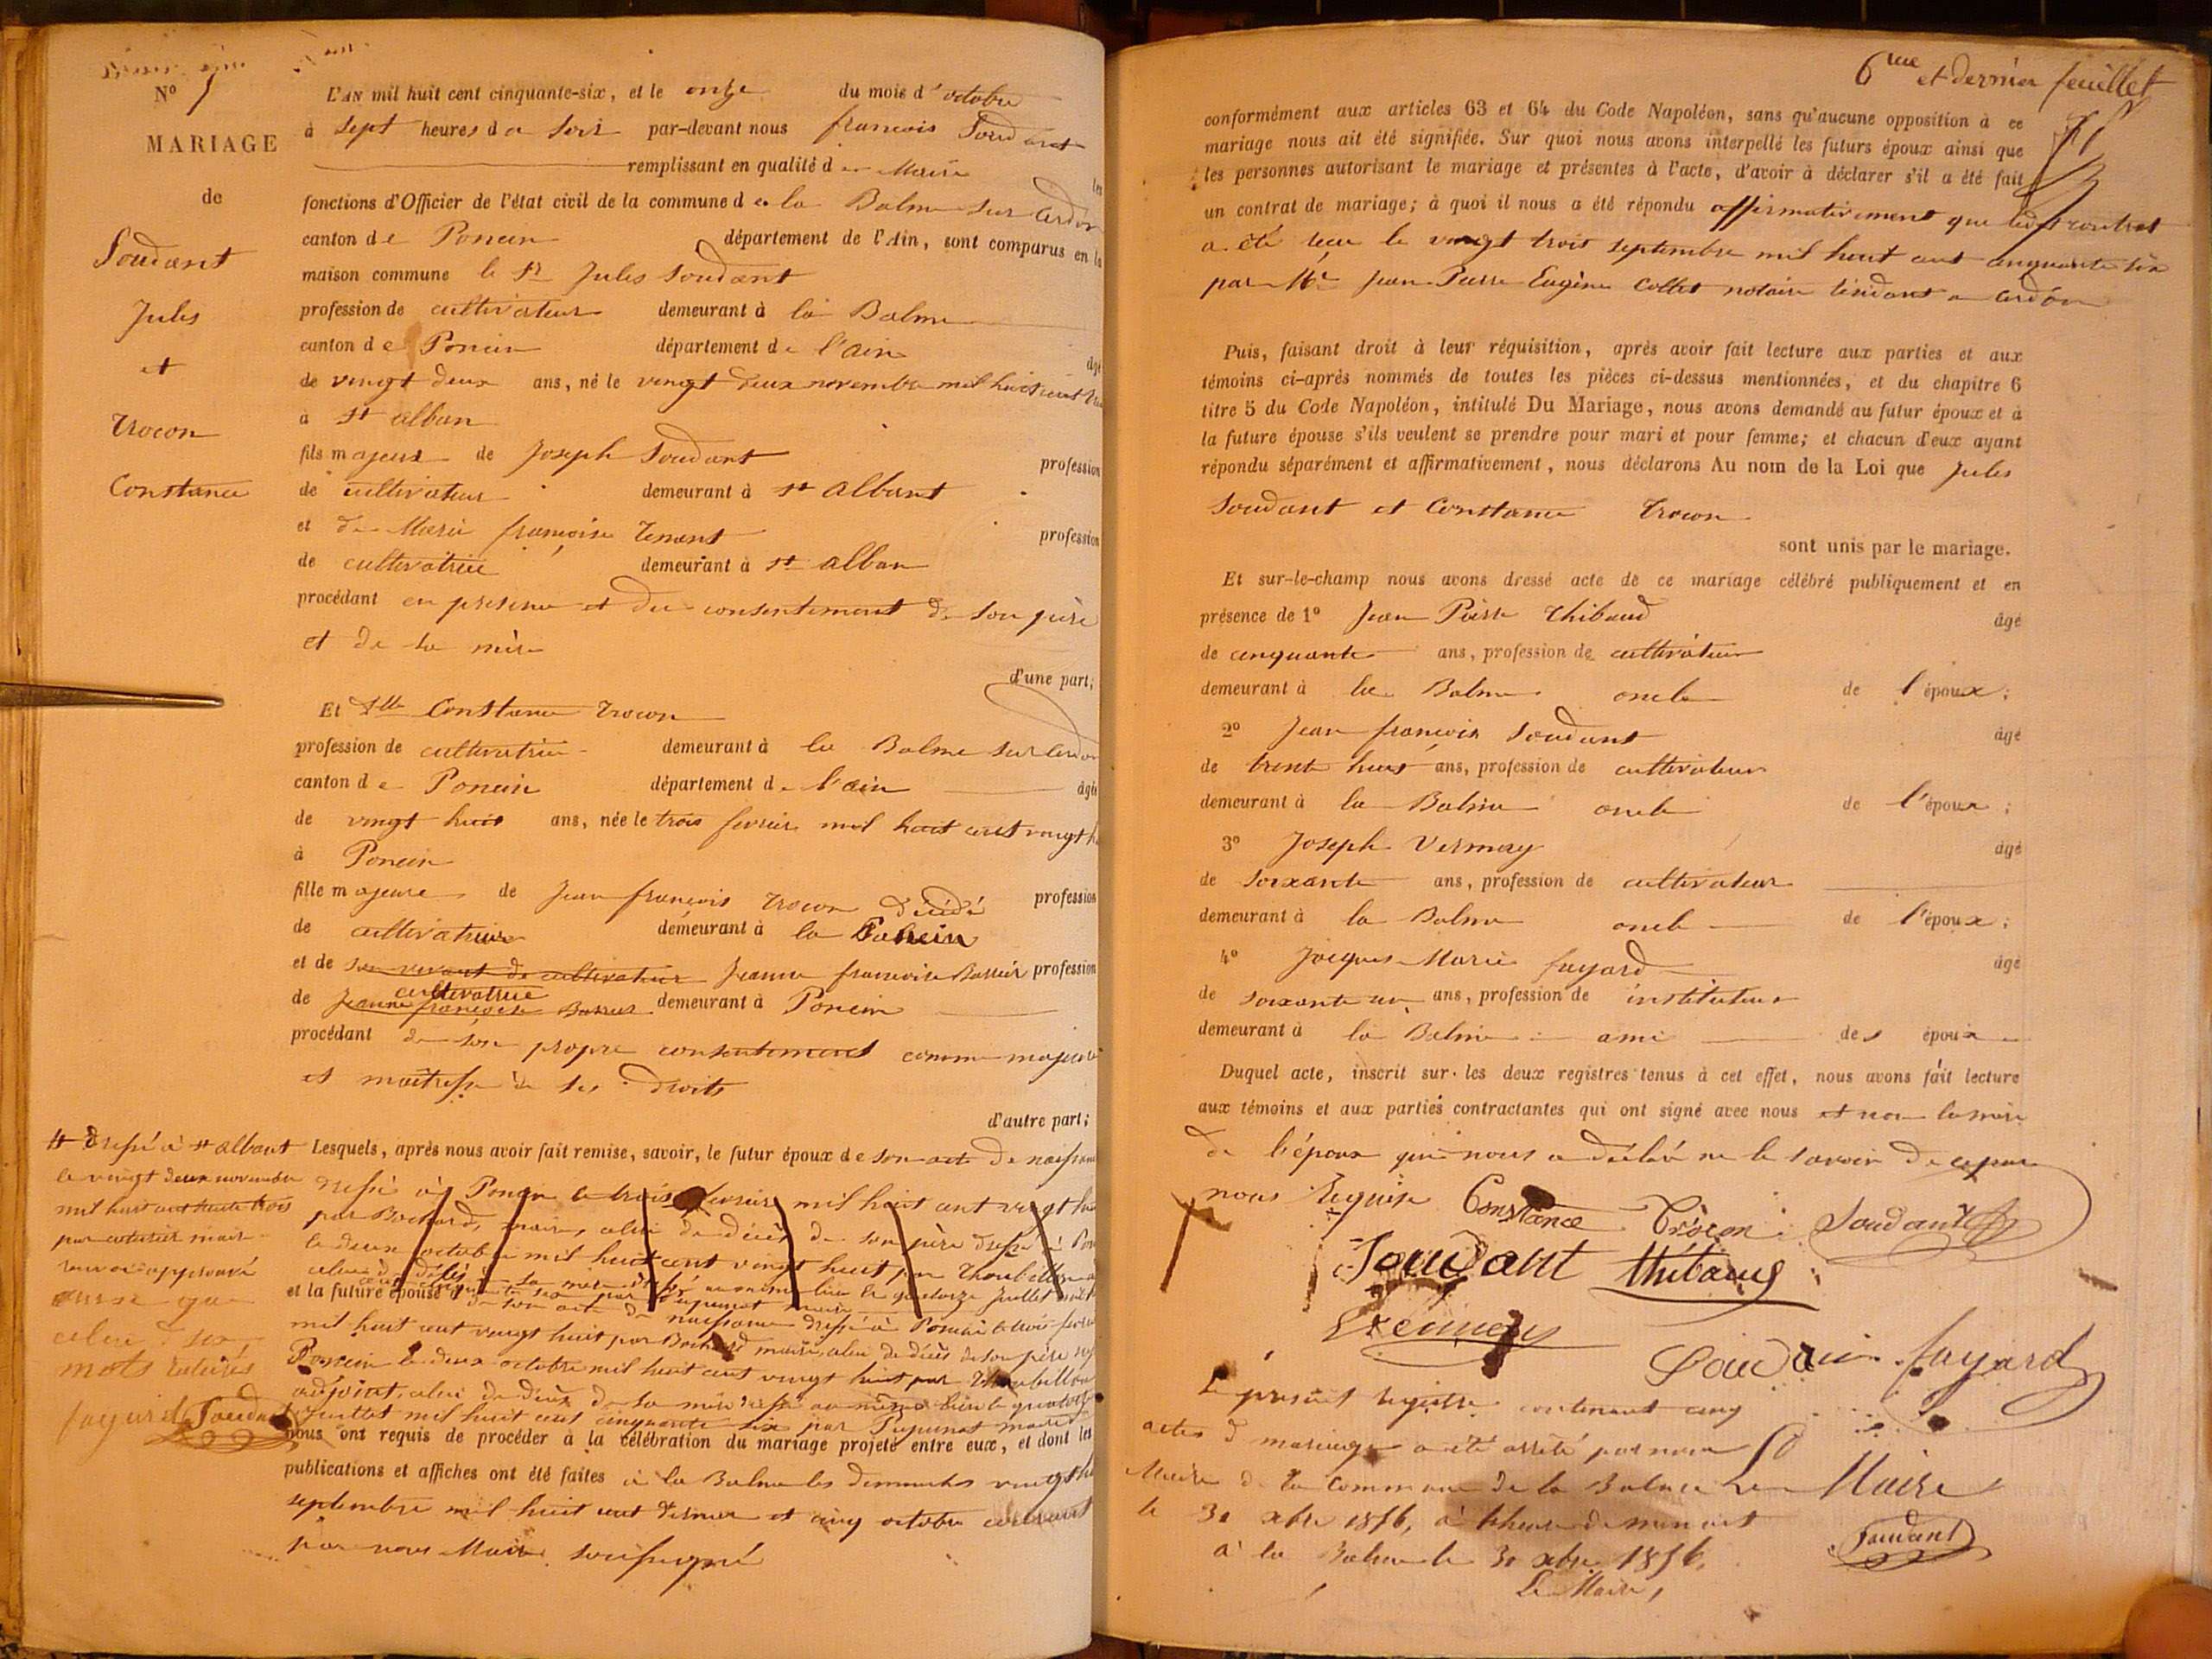 N° 5
MARIAGE
de
Soudant
Jules
et
Trocon
Constance
L'AN mil huit cent cinquante-six, et le onze du mois d'octobre
à sept heures du soir par-devant nous francois Soudant
remplissant en qualité de Maire les
fonctions d'Officier de l'état civil de la commune de la Balme sur Cerdon
canton de Poncin département de l'Ain, sont comparus en la
maison commune le Sr Jules Soudant
profession de cultivateur demeurant à la Balme
canton de Poncin département de l'ain âgé
de vingt deux ans, né le vingt deux novembre mil huit cent
à St alban
fils majeur de Joseph Soudant profession
de cultivateur demeurant à St Albant
et de Marie françoise Tenant profession
de cultivatrice demeurant à St alban
procédant en presence et du consentement de son père
et de sa mère
d'une part;
Et Dlle Constance Trocon
profession de cultivatrice demeurant à la Balme sur Cerdon
canton de Poncin département de l'ain âgée
de vingt huit ans, née le trois fevrier mil huit cent vingt
à Poncin
fille majeure de Jean françois Trocon décédé profession
de cultivateur demeurant à la Poncin
et de son vivant de cultivateur Jeanne francoise profession
cultivatrice
de Jeanne françoise demeurant à Poncin
procédant de son propre consentement comme majeure
et maîtresse de ses droits
d'autre part;
Lesquels, après nous avoir fait remise, savoir, le futur époux de son acte de naissance
dressé à Poncin le trois fevrier mil huit cent vingt huit
par Bochard, maire, celui de décès de son père dressé à
le deux octobre mil huit cent vingt huit par
et la future épouse
de son acte de naissance dressé à Poncin le trois
mil huit cent vingt huit par Bochard maire, celui de décès de son père
Poncin le deux octobre mil huit cent vingt huit par
adjoint, celui de décès de sa mère dressé au même lieu le quatorze
juillet mil huit cent cinquante six par maire
nous ont requis de procéder à la célébration du mariage projeté entre eux, et dont les
publications et affiches ont été faites à la Balme les dimanches vingt
septembre mil huit cent dernier et cinq octobre courant
par nous Maire soussigné
dressé à St albant
le vingt deux novembre
mil huit cent trente trois
par maire
approuvé
celui
mots raturés
fayard Soudant
6me et dernier feuillet
conformément aux articles 63 et 64 du Code Napoléon, sans qu'aucune opposition à ce
mariage nous ait été signifiée. Sur quoi nous avons interpellé les futurs époux ainsi que
les personnes autorisant le mariage et présentes à l'acte, d'avoir à déclarer s'il a été fait
un contrat de mariage; à quoi il nous a été répondu affirmativement que ledit contrat
a été reçu le vingt trois septembre mil huit cent cinquante six
par Me Jean Pierre Eugène Collet notaire résidant a Cerdon
Puis, faisant droit à leur réquisition, après avoir fait lecture aux parties et aux
témoins ci-après nommés de toutes les pièces ci-dessus mentionnées, et du chapitre 6
titre 5 du Code Napoléon, intitulé Du Mariage, nous avons demandé au futur époux et à
la future épouse s'ils veulent se prendre pour mari et pour femme; et chacun d'eux ayant
répondu séparément et affirmativement, nous déclarons Au nom de la Loi que Jules
Soudant et Constance Trocon
sont unis par le mariage.
Et sur-le-champ nous avons dressé acte de ce mariage célébré publiquement et en
présence de 1° Jean Pierre Thibaud âgé
de cinquante ans, profession de cultivateur
demeurant à la Balme oncle de l'époux;
2° Jean francois Soudant âgé
de trente huit ans, profession de cultivateur
demeurant à la Balme oncle de l'époux;
3° Joseph Vermay âgé
de soixante ans, profession de cultivateur
demeurant à la Balme oncle de l'époux;
4° Jacques Marie fayard âgé
de soixante un ans, profession de instituteur
demeurant à la Balme ami des époux
Duquel acte, inscrit sur les deux registres tenus à cet effet, nous avons fait lecture
aux témoins et aux parties contractantes qui ont signé avec nous et non la mère
de l'époux qui nous a déclaré ne le savoir de ce par
nous requise Constance Trocon Soudant
Soudant thibaud
Soudan fayard
Le présent registre contenant cinq
actes de mariage a été arrêté par nous
Maire de la Commune de la Balme Le Maire
le 31 xbre 1856, à l'heure de minuit Soudant
à la Balme le 31 xbre 1856,
Le Maire,